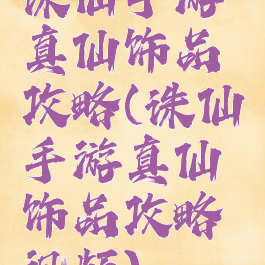 诛仙手游
真仙饰品
攻略(诛仙
手游真仙
饰品攻略
视频)